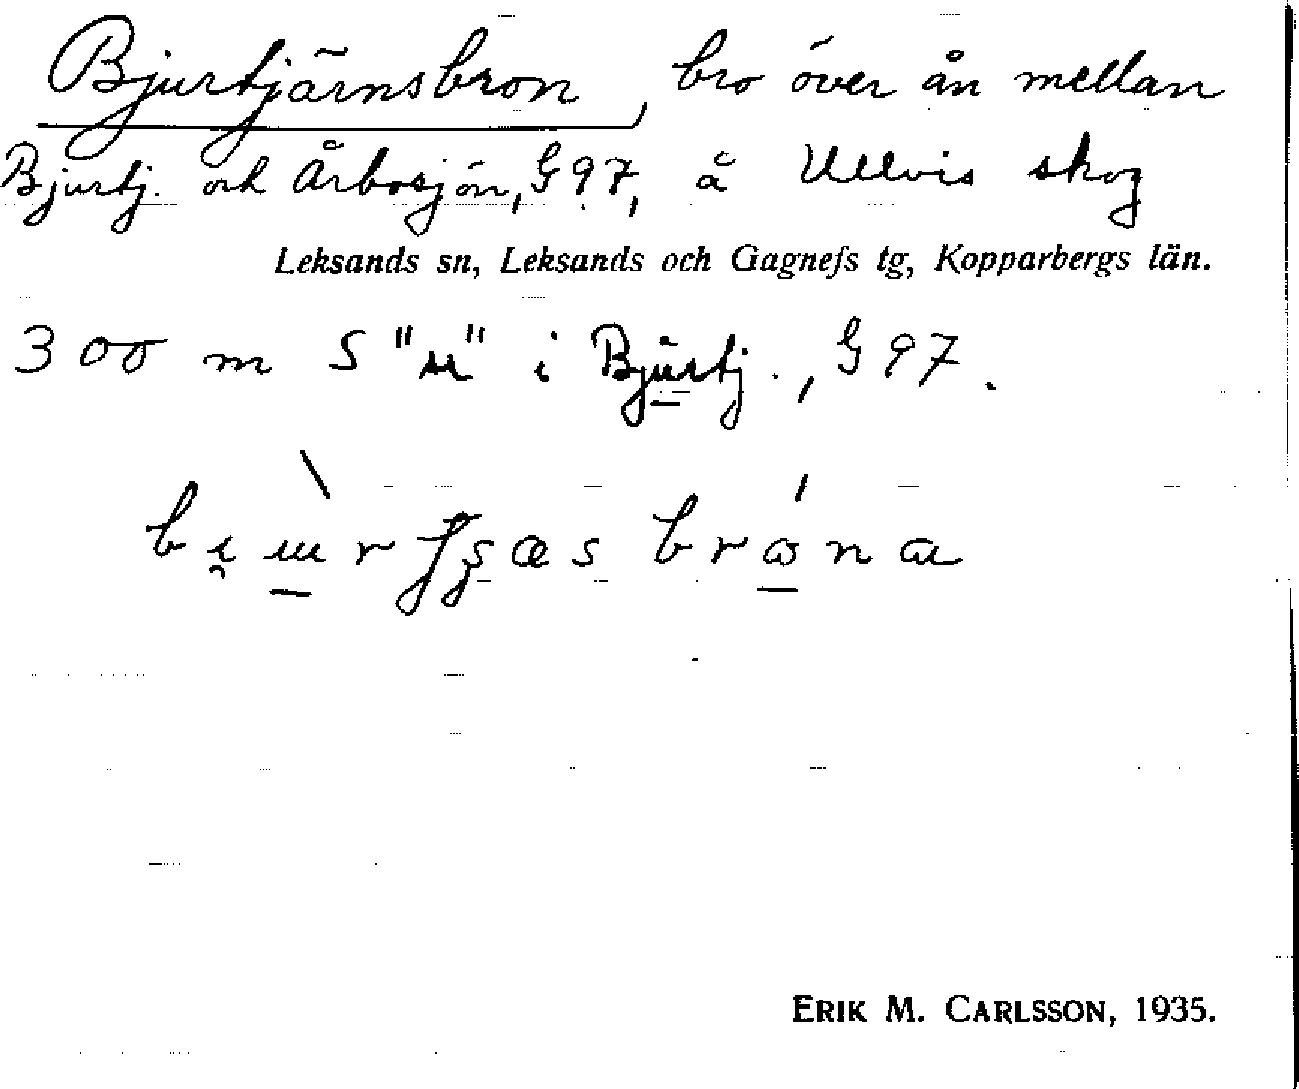 Bjurtjärnsbron, bro över ån mellan
Bjurtj. och Årbosjön, G97, å Ullvis skog
Leksands sn, Leksands och Gagnefs tg, Kopparbergs län.
300 m S "u" i Bjurtj., G97.
brona
ERIK M. CARLSSON, 1935.